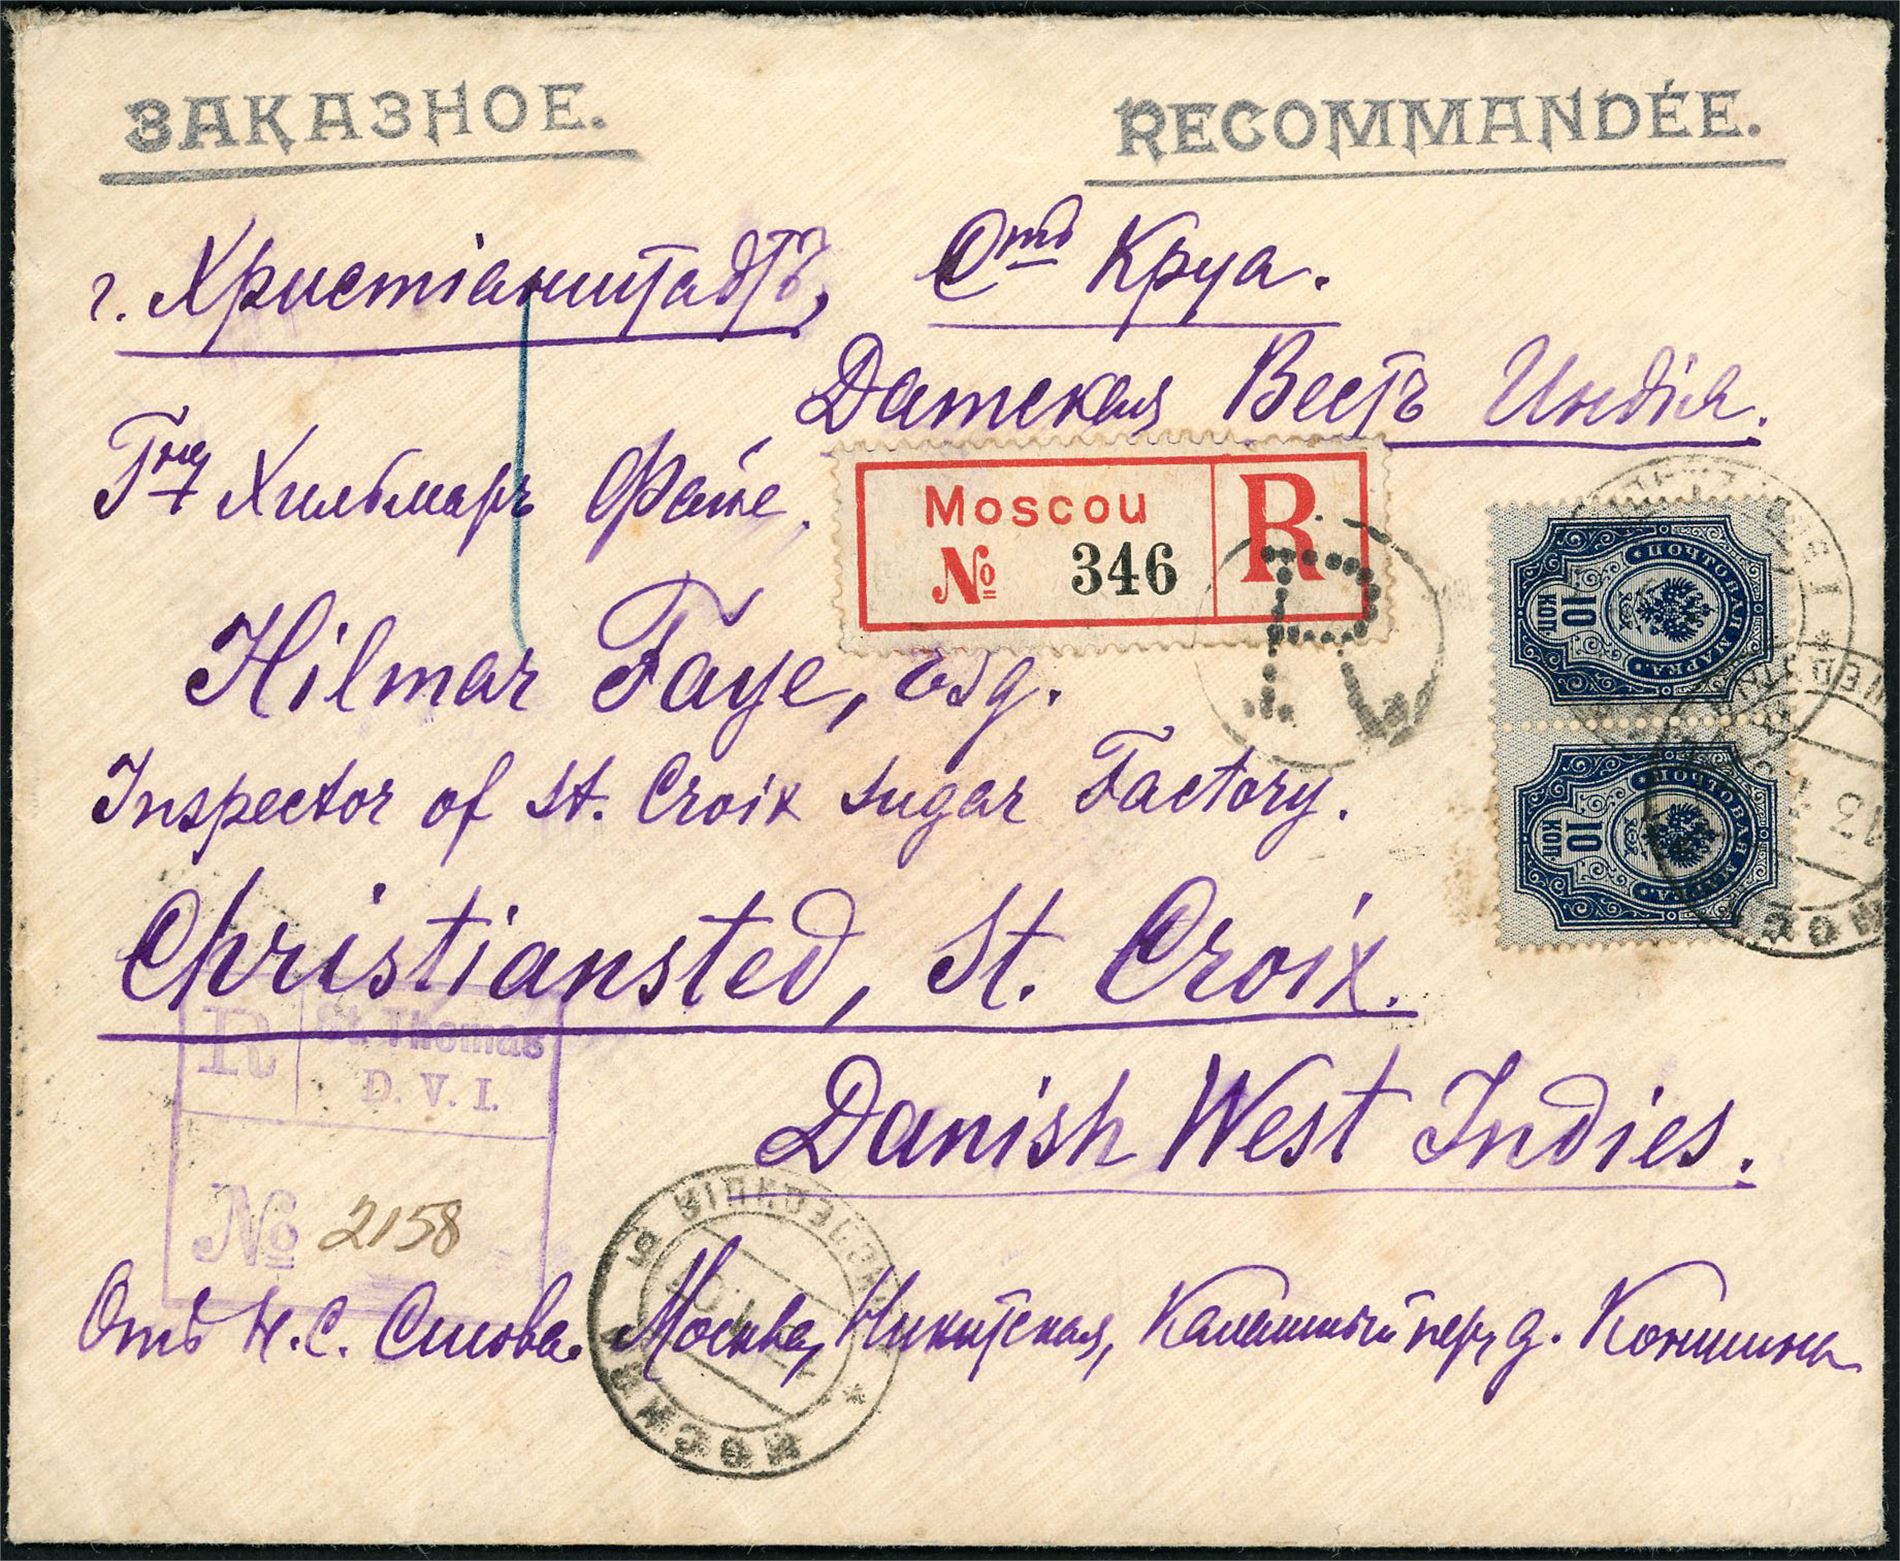 ЗАКАЗНОЕ. RECOMMANDÉE.
г. Христіанштадтъ, Стъ Круа.
Датская Вестъ Индія.
Гну Хильмаръ Файе.
Moscou
№ 346
R
R
ПОЧТОВАЯ МАРКА
10 КОП.
ПОЧТОВАЯ МАРКА
10 КОП.
Hilmar Faye, Esq.
Inspector of St. Croix Sugar Factory.
Christiansted, St. Croix.
R St. Thomas
D. V. I.
Danish West Indies.
№ 2158
МОСКВА
ЭКСПЕДИЦІЯ
Отъ Н. С. Москва, Никитская, Калашный пер, д.